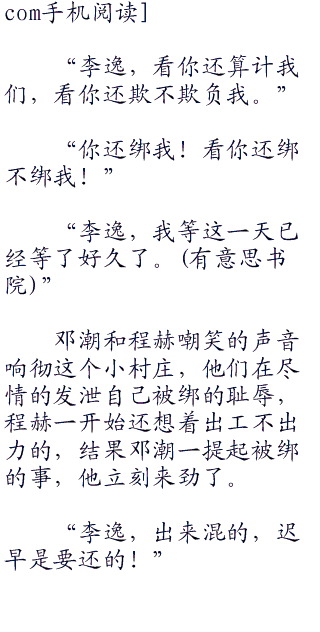 com手机阅读]
“李逸，看你还算计我
们，看你还欺不欺负我。”
“你还绑我！看你还绑
不绑我！”
“李逸，我等这一天已
经等了好久了。(有意思书
院)”
邓潮和程赫嘲笑的声音
响彻这个小村庄，他们在尽
情的发泄自己被绑的耻辱，
程赫一开始还想着出工不出
力的，结果邓潮一提起被绑
的事，他立刻来劲了。
“李逸，出来混的，迟
早是要还的！”